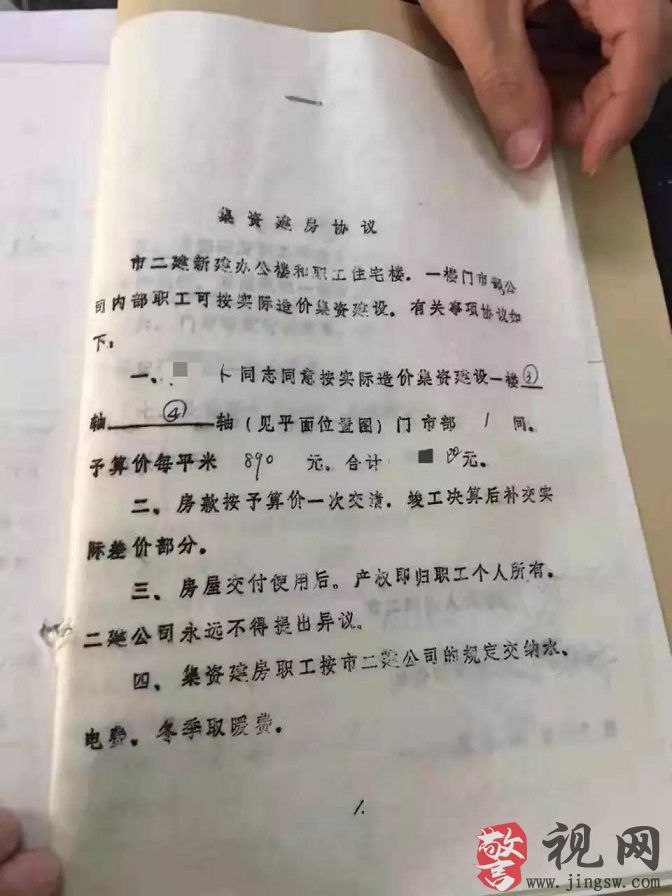 集资建房协议
市二建新建办公楼和职工住宅楼。一楼门市部,公
司内部职工可按实际造价集资建设。有关事项协议如
下:
一、 同志同意按实际造价集资建设一楼③
轴 ④ 轴(见平面位置图)门市部 1 间。
予算价每平米 890 元。合计 元。
二、房款按予算价一次交清,竣工决算后补交实
际差价部分。
三、房屋交付使用后。产权即归职工个人所有。
二建公司永远不得提出异议。
四、集资建房职工按市二建公司的规定交纳水、
电费。冬季取暖费。
1.
警视网
www.jingsw.com